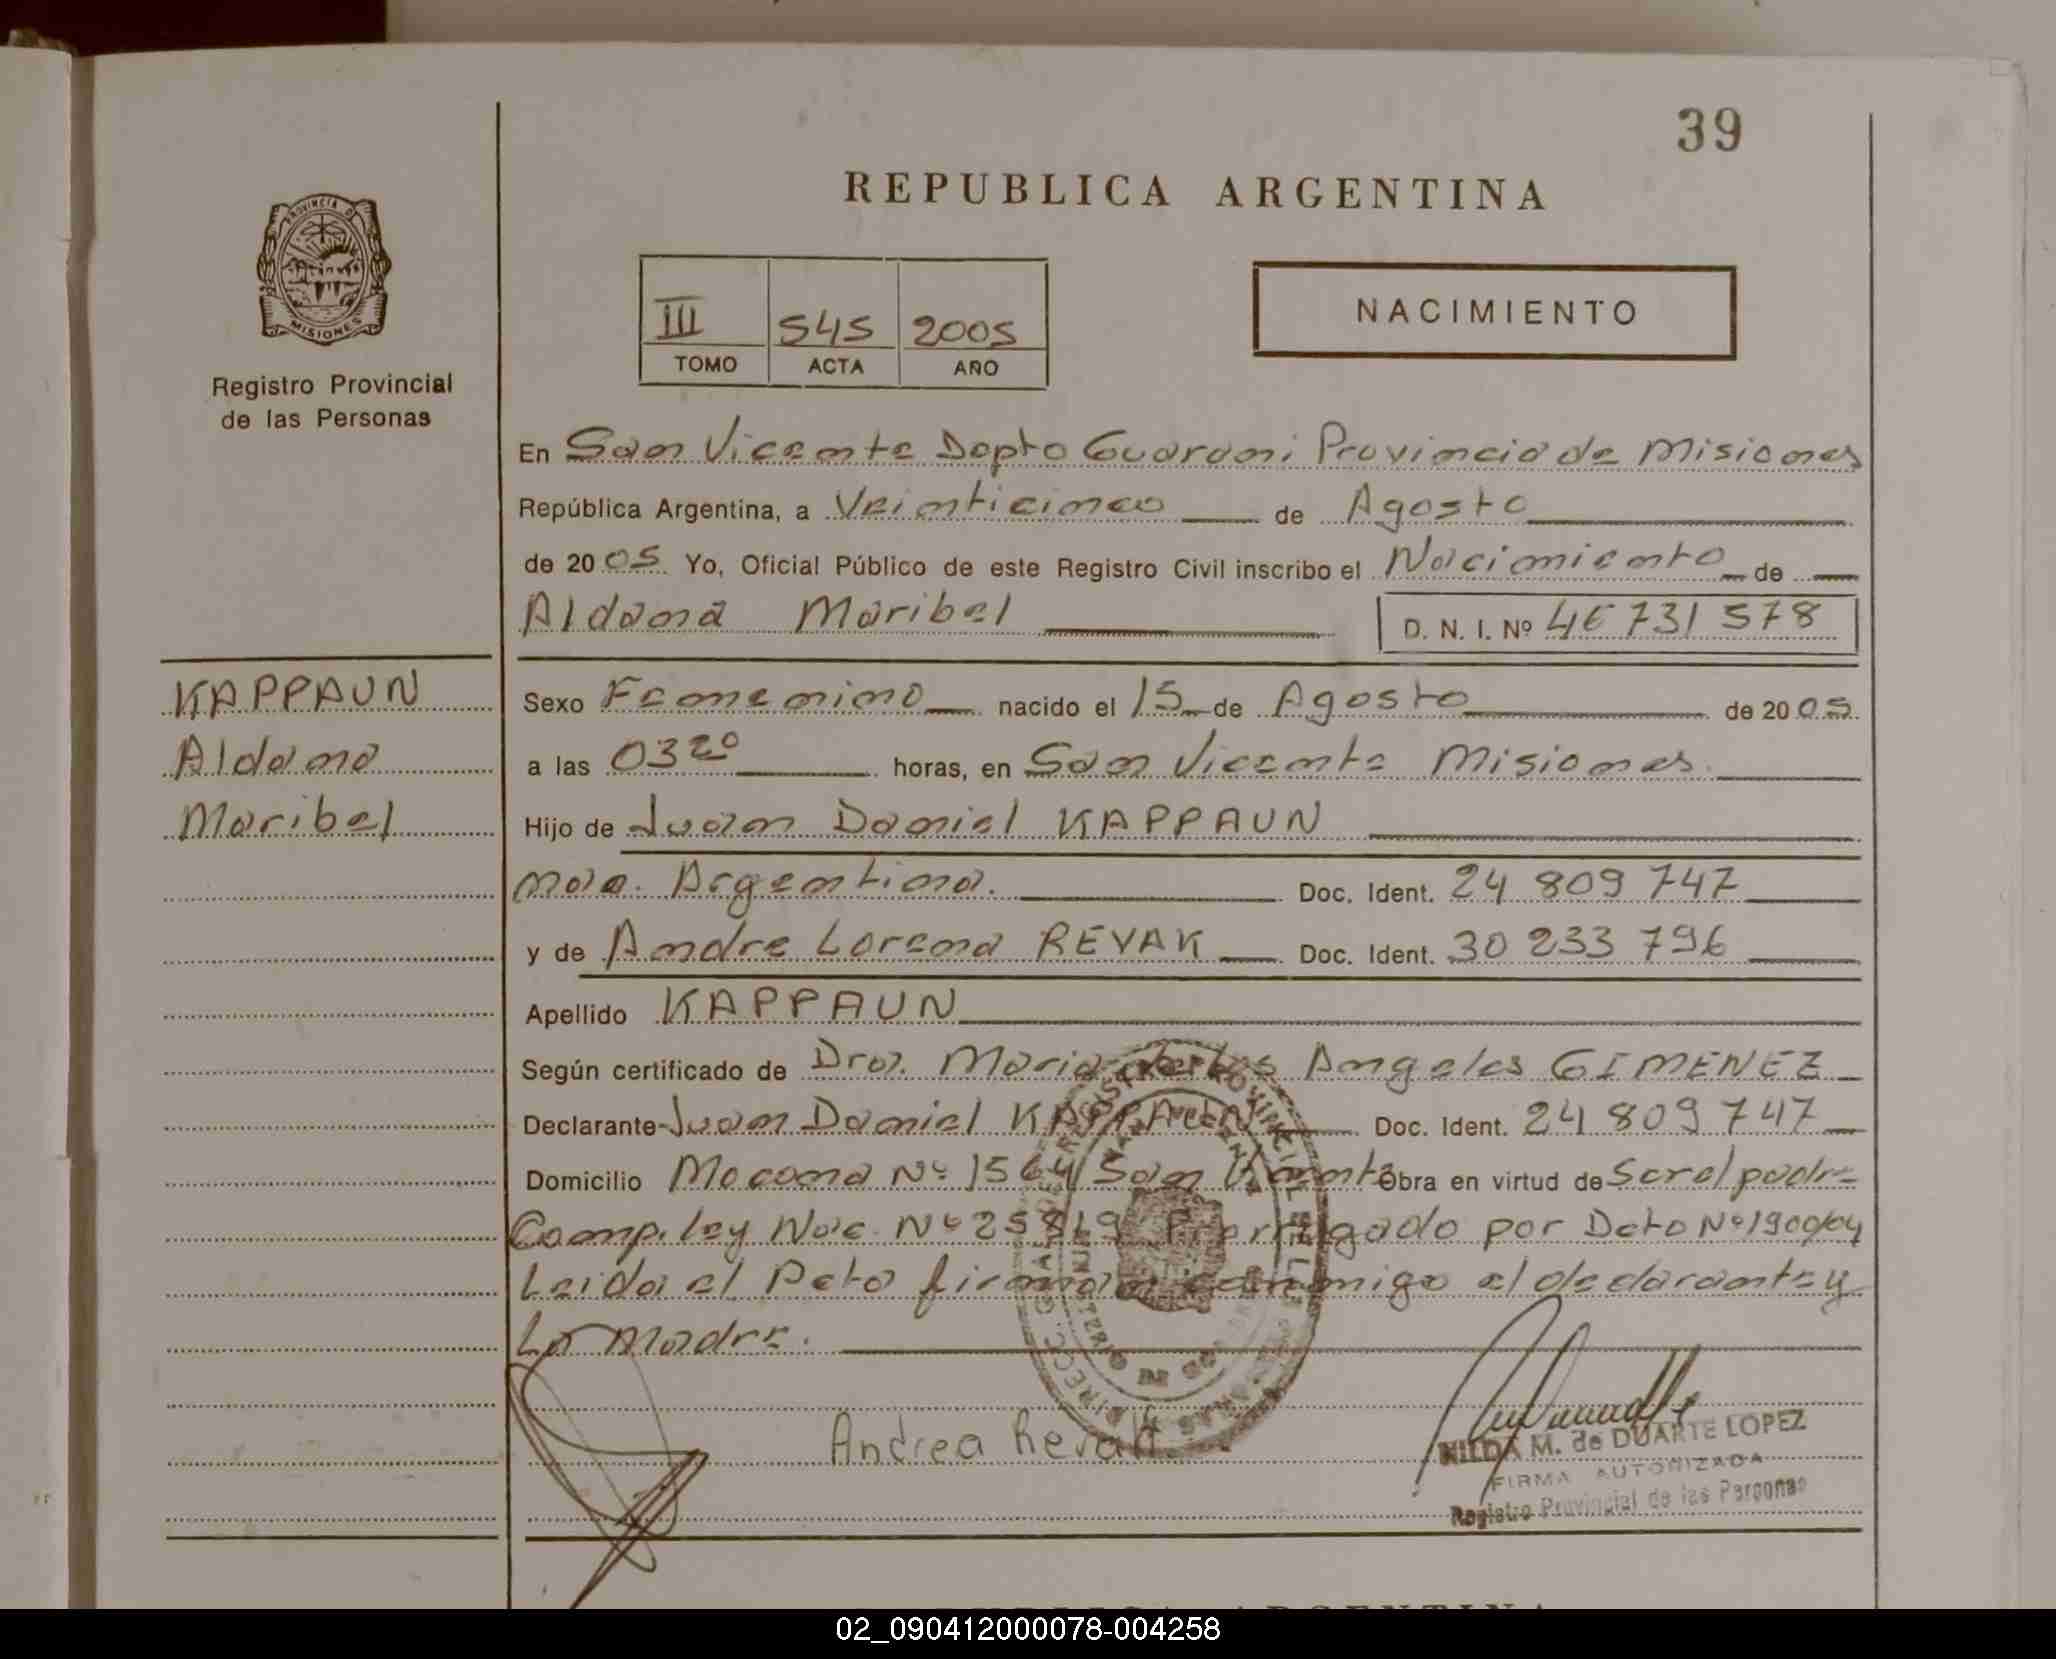 39
REPUBLICA ARGENTINA
PROVINCIA D
MISIONES
Registro Provincial
de las Personas
III 545 2005
TOMO ACTA AÑO
NACIMIENTO
En San Vicente Dapto Guarani Provincia de Misiones
República Argentina, a Veinticinco de Agosto
de 2005 Yo, Oficial Público de este Registro Civil inscribo el Nacimiento de
Aldana Maribel D. N. I. Nº 46 731 578
KAPPAUN
Aldana
Maribel
Sexo Femenino nacido el 15 de Agosto de 2005
a las 03 20 horas, en San Vicente Misiones.
Hijo de Juan Daniel KAPPAUN
nac. Argentina. Doc. Ident. 24 809 747
y de Andre Lorena REVAK Doc. Ident. 30 233 796
Apellido KAPPAUN
Según certificado de Dra. Maria de los Angeles GIMENEZ
Declarante Juan Daniel KAPPAUN Doc. Ident. 24 809 747
Domicilio Mocona Nº 1564 San Vicente Obra en virtud de Ser el padre
Comp. ley Nac. Nº 25819 Prorrogado por Dcto Nº 1900/04
Leida el Acta firman conmigo el declarante y
La Madre.
Andrea Revak
HILDA M. de DUARTE LOPEZ
FIRMA AUTORIZADA
Registro Provincial de las Personas
02_090412000078-004258